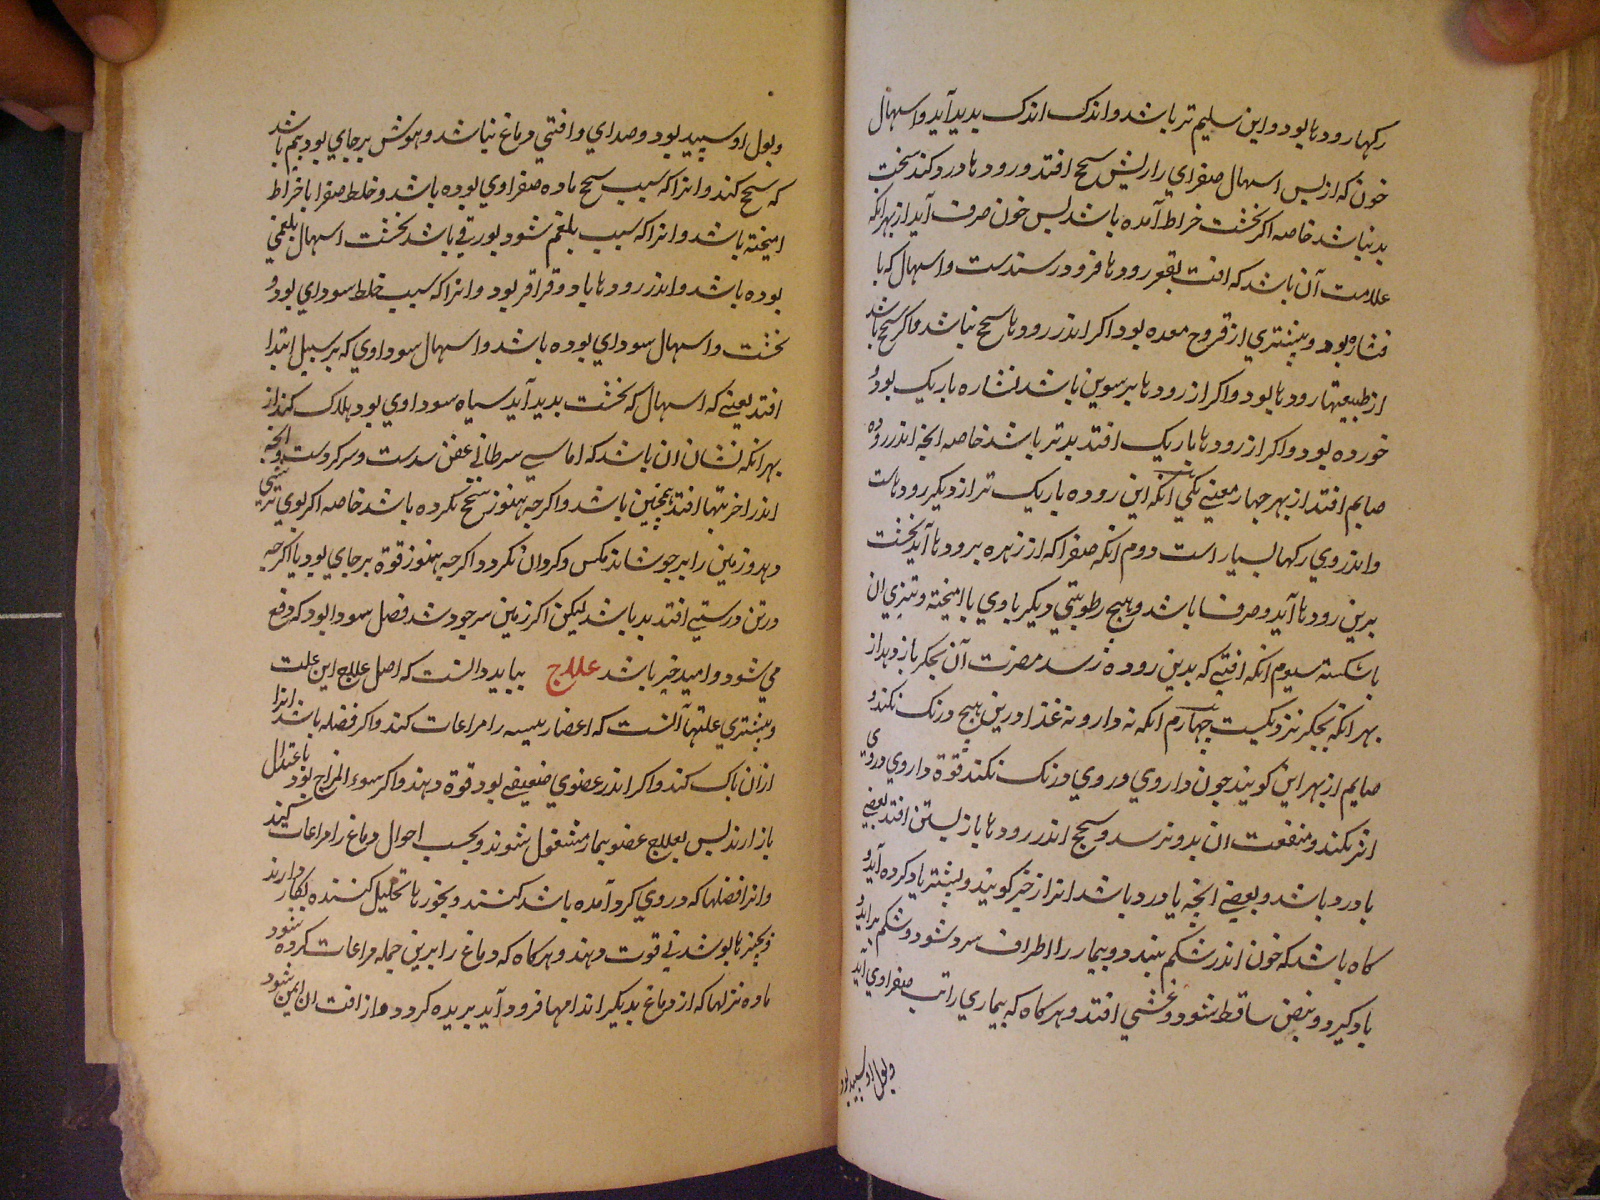 رکهار رودها بود و این سلیم تر باشد و اندک اندک بدید آید و اسهال
خون که از پس اسهال صفرای را ریش سحج افتد و رودها درد کند سخت
بد نباشد خاصه اکر نخست خراط آمده باشد پس خون صرف آید از بهر انکه
علامت آن باشد که افت بقعر رودها فرو رسیدست و اسهال که با
بود و بیشتری از قروح معده بود اکر اندر رودها سحج نباشد و اکر سحج باشد
از طبیعتهار رودها بود و اکر از رودها زیرسوین باشد باریک بود و
خورده بود و اکر از رودها باریک افتد بدتر باشد خاصه انچه اندر روده
صایم افتد از بهر چهار معنی یکی آنکه این روده باریک تر از دیکر رودهاست
و اندر وی رکها بسیار است دوم انکه صفرا که از زهره برودها آید نخست
برین رودها آید و صرف باشد و هیچ رطوبتی دیکر با وی نا امیخته و تیزی ان
نا شکسته سیوم انکه افتی که بدین روده رسد مضرت آن بجکر باز دهد از
بهر انکه بجکر نزدیکست چهارم انکه نه دارو نه غذا درین هیچ درنک نکند و
صایم از بهر این کویند چون داروی در وی درنک نکند قوة داروی در وی
اثر نکند و منفعت ان بدو نرسد و سحج اندر رودها باز پستن افتد بعضی
با درد باشد و بعضی انچه با درد باشد انرا زحیر کویند و پیشتر یاد کرده آید و
کاه باشد که خون اندر شکم ببندد و بیمار را اطراف سرد شود و شکم براید و
باد کیرد و نبض ساقط شود و غشی افتد و هر کاه که بیماری را تب صفراوی آید
و بول او سپید بود
و بول او سپید بود و صدای و افتی دماغ نباشد و هوش برجای بود بیم باشد
که سحج کند و انرا که سبب سحج ماده صفراوی بوده باشد و خلط صفرا با خراط
امیخته باشد و انرا که سبب بلغم شود بورقی باشد نخست اسهال بلغمی
بوده باشد و اندر رودها باد و قراقر بود و انرا که سبب خلط سودای بود و
نخست و اسهال سودای بوده باشد و اسهال سوداوی که بر سبیل ابتدا
افتد یعنی که اسهال که نخست بدید آید سیاه سوداوی بود هلاک کند از
بهر انکه نشان ان باشد که اماسی سرطانی عفن شدست و سر کردست و انچه
اندر اخر تبها افتد همچنین باشد و اکر چه هنوز سحج نکرده باشد خاصه اکر بوی ترشی
دهد و زمین را بر جوشاند مکس و کرد ان نکردد و اکر چه هنوز قوة برجای بود یا اکر چه
در تن درستی افتد بد باشد لیکن اکر زمین بر جوشد فضل سودا بود که دفع
می شود و امید خیر باشد علاج بباید دانست که اصل علاج این علت
و بیشتری علتها آنست که اعضا رییسه را مراعات کند و اکر فضله باشد انرا
از ان پاک کند و اکر اندر عضوی ضعیفی بود قوة دهند و اکر سوء المزاج بود باعتدال
باز ارند پس بعلاج عضو بیمار مشغول شوند و بحسب احوال دماغ را مراعات کنند
و انرا فضلها که در وی کرد آمده باشد کنند و بخورها تحلیل کننده بکار دارند
و بچیزها بوشیدنی قوت دهند و هر کاه که دماغ را برین جمله مراعات کرده شود
ماده نزلها که از دماغ بدیکر اندامها فرود آید بریده کردد و از افت ان ایمن شود